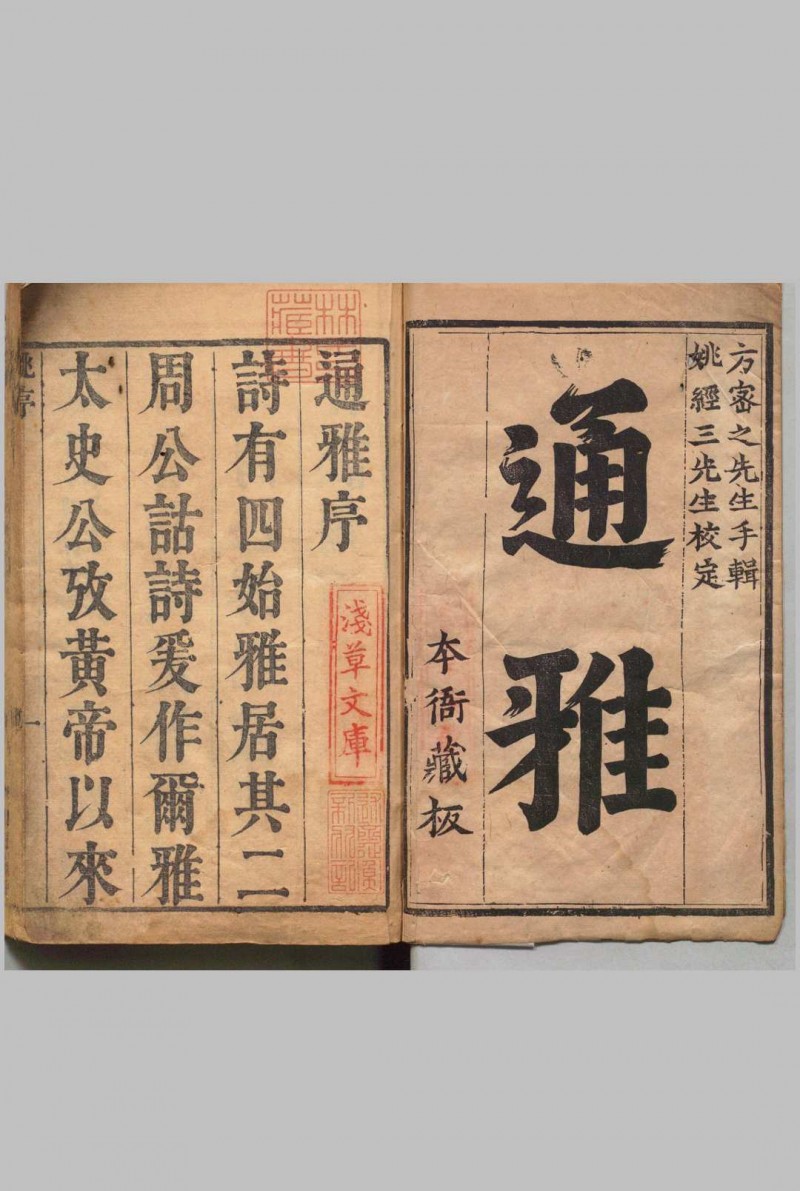 方密之先生手輯
姚經三先生校定
通雅
本衙藏板
通雅序
詩有四始雅居其二
周公詁詩爰作爾雅
太史公攷黃帝以來
姚序
一
淺草文庫
林氏藏書